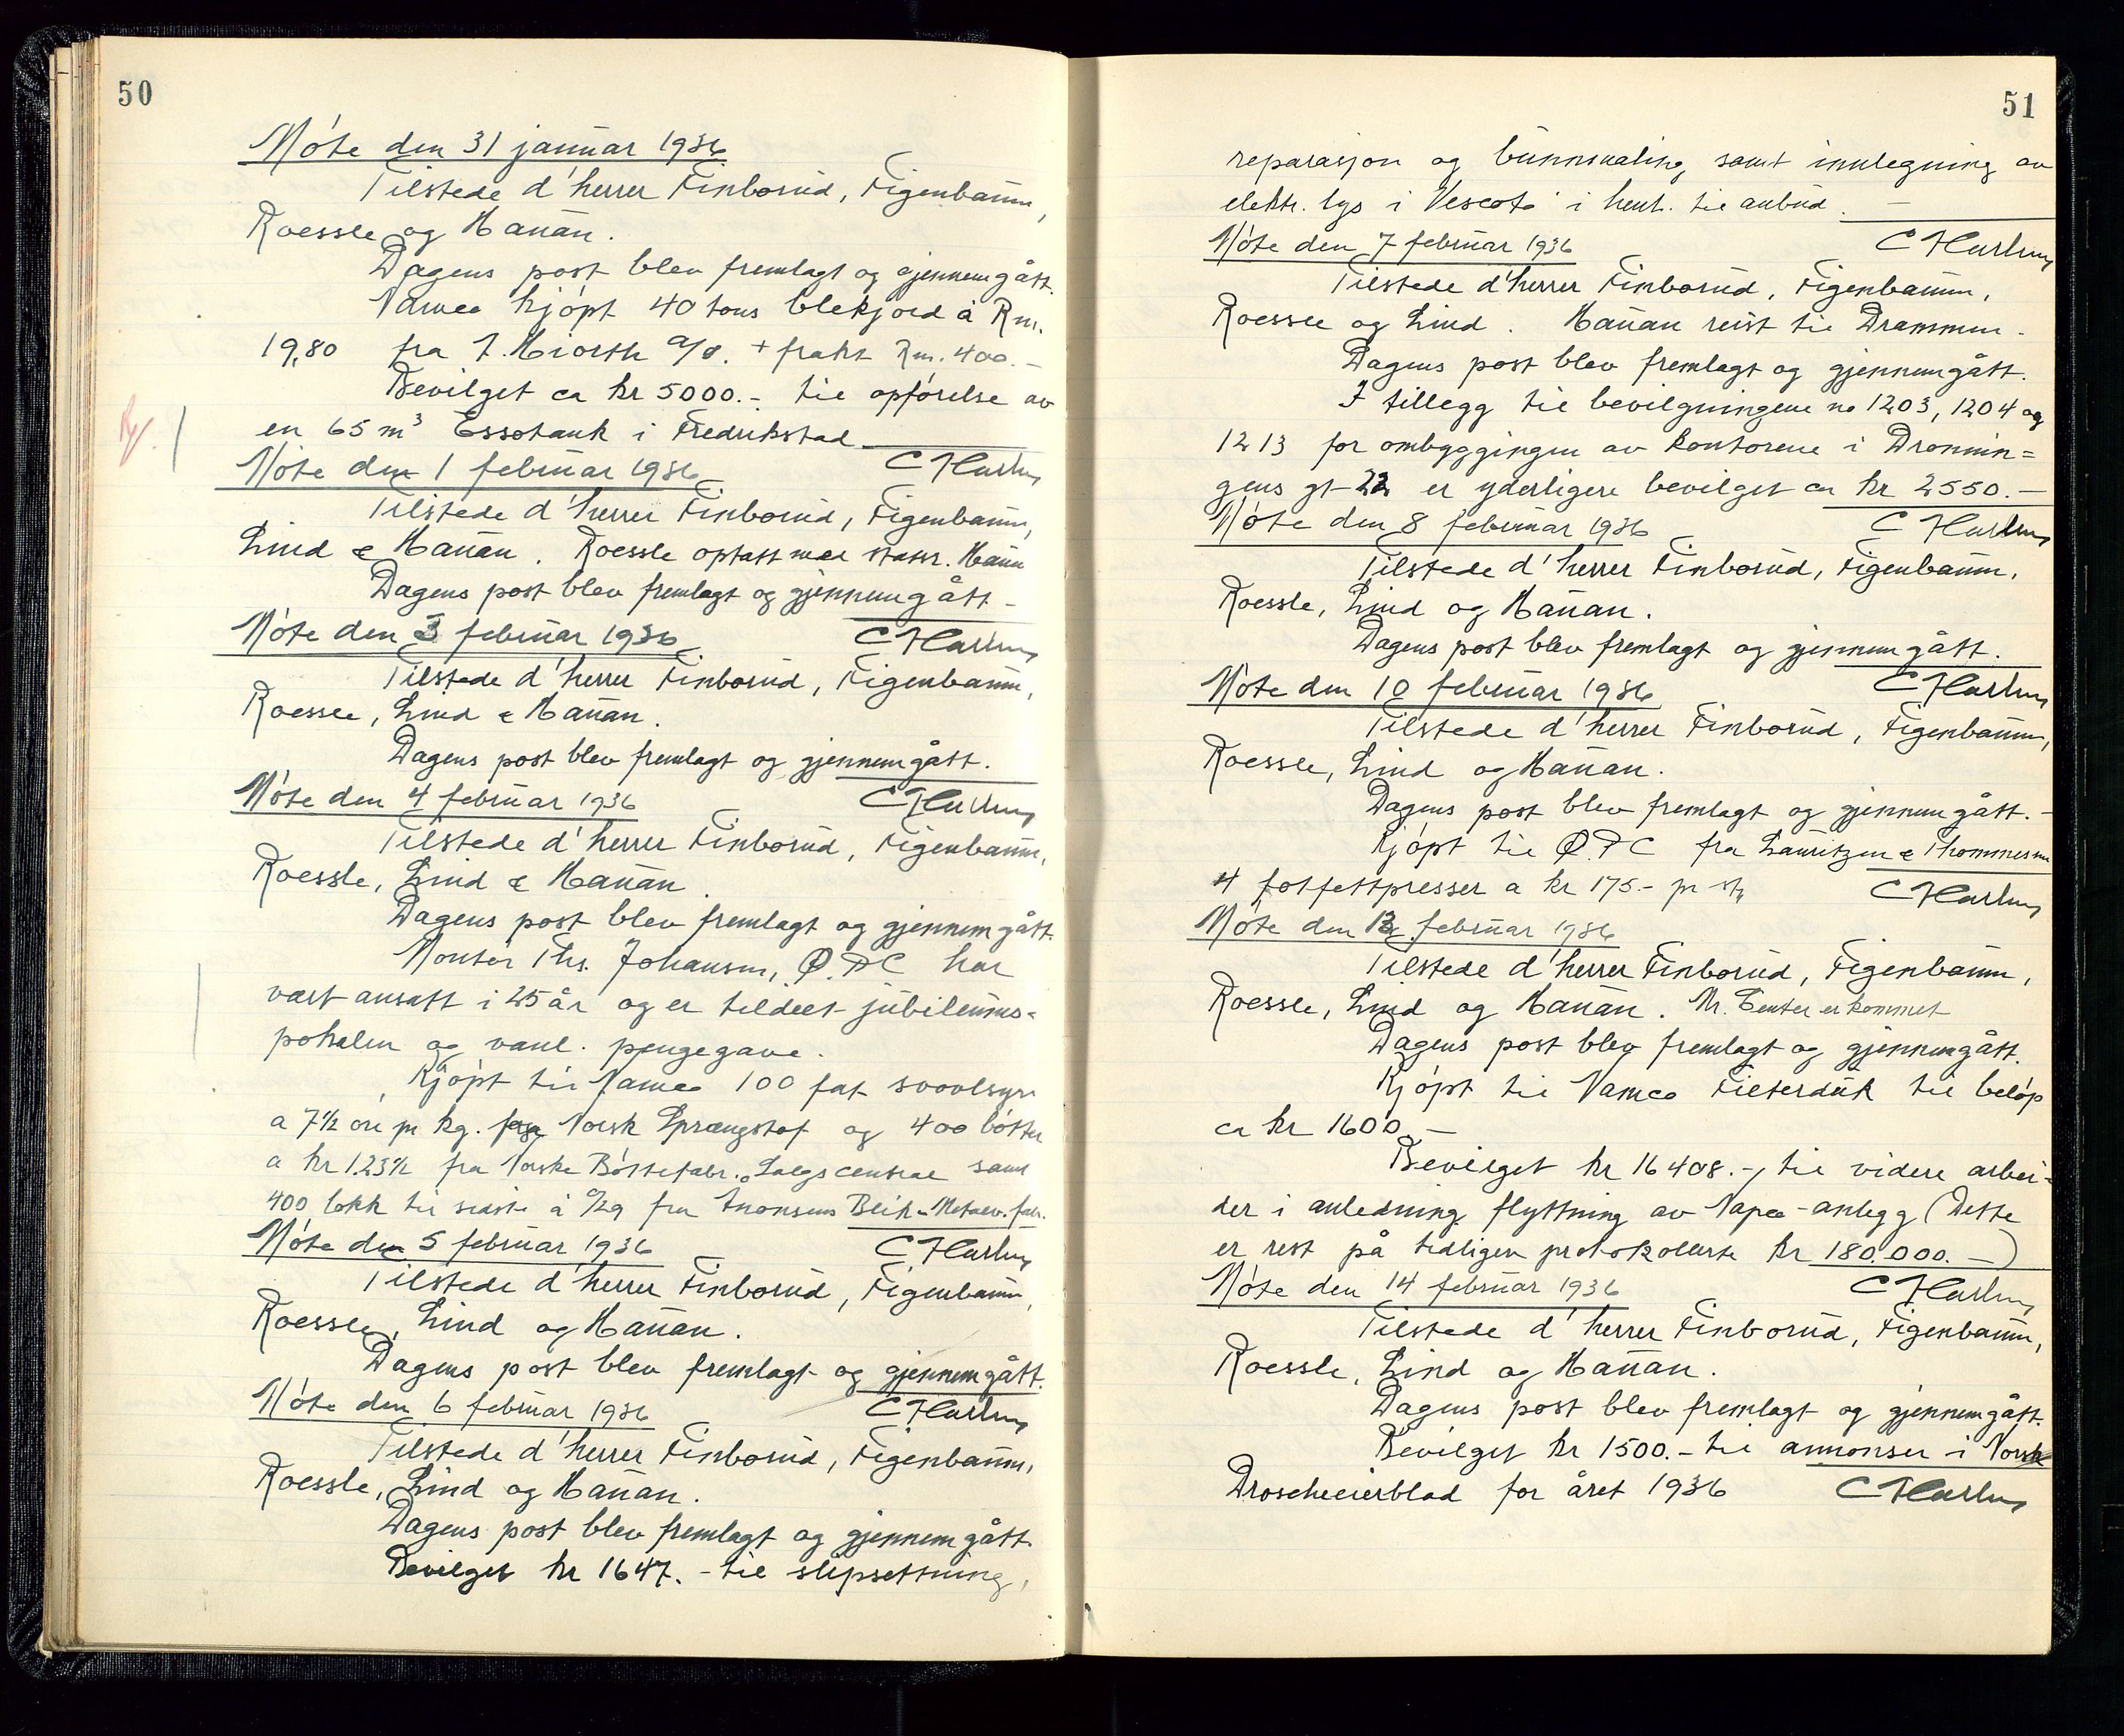 50
Möte den 31 januar 1936
Tilstede d'herrer Finborud, Figenbaum,
Roessle og Hanan.
Dagens post blev fremlagt og gjennemgått.
Vamco kjöpt 40 tons blekjord à Rm.
19,80 fra F. Hiorth a/s. + frakt Rm. 400.-
Bevilget ca kr 5000.- til opförelse av
en 65 m³ Essotank i Fredrikstad
Möte den 1 februar 1936
Tilstede d'herrer Finborud, Figenbaum,
Lind & Hanan. Roessle optatt med
Dagens post blev fremlagt og gjennemgått -
Möte den 3 februar 1936
Tilstede d'herrer Finborud, Figenbaum,
Roessle, Lind & Hanan.
Dagens post blev fremlagt og gjennemgått.
Möte den 4 februar 1936
Tilstede d'herrer Finborud, Figenbaum,
Roessle, Lind & Hanan.
Dagens post blev fremlagt og gjennemgått.
Montör Ths. Johansen, Ø.P.C har
vært ansatt i 25 år og er tildelt jubileums-
pokalen og vanl. pengegave.
Kjöpt til Vamco 100 fat svovlsyre
a 7½ öre pr kg. fra Norsk Sprængstof og 400 bötter
a kr 1.23½ fra Norske Böttefabr. Salgscentral samt
400 lokk til sidste à fra Blik & Metalv.fabr.
Möte den 5 februar 1936
Tilstede d'herrer Finborud, Figenbaum,
Roessle, Lind og Hanan.
Dagens post blev fremlagt og gjennemgått.
Möte den 6 februar 1936
Tilstede d'herrer Finborud, Figenbaum,
Roessle, Lind og Hanan.
Dagens post blev fremlagt og gjennemgått.
Bevilget kr 1647.- til slipsettning,
51
reparasjon og bunnmaling, samt innlegning av
elektr. lys i "Vescoto" i henh. til anbud. -
Möte den 7 februar 1936
Tilstede d'herrer Finborud, Figenbaum,
Roessle og Lind. Hanan reist til Drammen.
Dagens post blev fremlagt og gjennemgått.
I tillegg til bevilgningene no 1203, 1204 og
1213 for ombyggingen av kontorene i Dronnin=
gens gt 22 er yderligere bevilget ca kr 2550.-
Möte den 8 februar 1936
Tilstede d'herrer Finborud, Figenbaum,
Roessle, Lind og Hanan.
Dagens post blev fremlagt og gjennemgått.
Möte den 10 februar 1936
Tilstede d'herrer Finborud, Figenbaum,
Roessle, Lind og Hanan.
Dagens post blev fremlagt og gjennemgått.-
Kjöpt til Ø.P.C fra Lauritzen & Thommesen
4 fotfettpresser a kr 175.- pr stk
Möte den 13 februar 1936
Tilstede d'herrer Finborud, Figenbaum,
Roessle, Lind og Hanan. Mr. er kommet
Dagens post blev fremlagt og gjennemgått.
Kjöpt til Vamco Filterduk til belöp
ca kr 1600.-
Bevilget kr 16408.-, til videre arbei-
der i anledning flyttning av Vapco-anlegg (Dette
er rest på tidligere protokollerte kr 180.000.-)
Möte den 14 februar 1936
Tilstede d'herrer Finborud, Figenbaum,
Roessle, Lind og Hanan.
Dagens post blev fremlagt og gjennemgått.
Bevilget kr 1500.- til annonser i Norsk
Droscheeierblad for året 1936